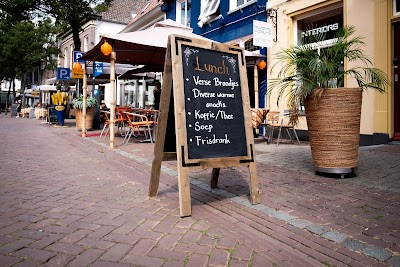 INTERIORS
Lunch
• Verse Broodjes
Diverse warme
snacks.
• Koffie/Thee
• Soep
• Frisdrank
P
P